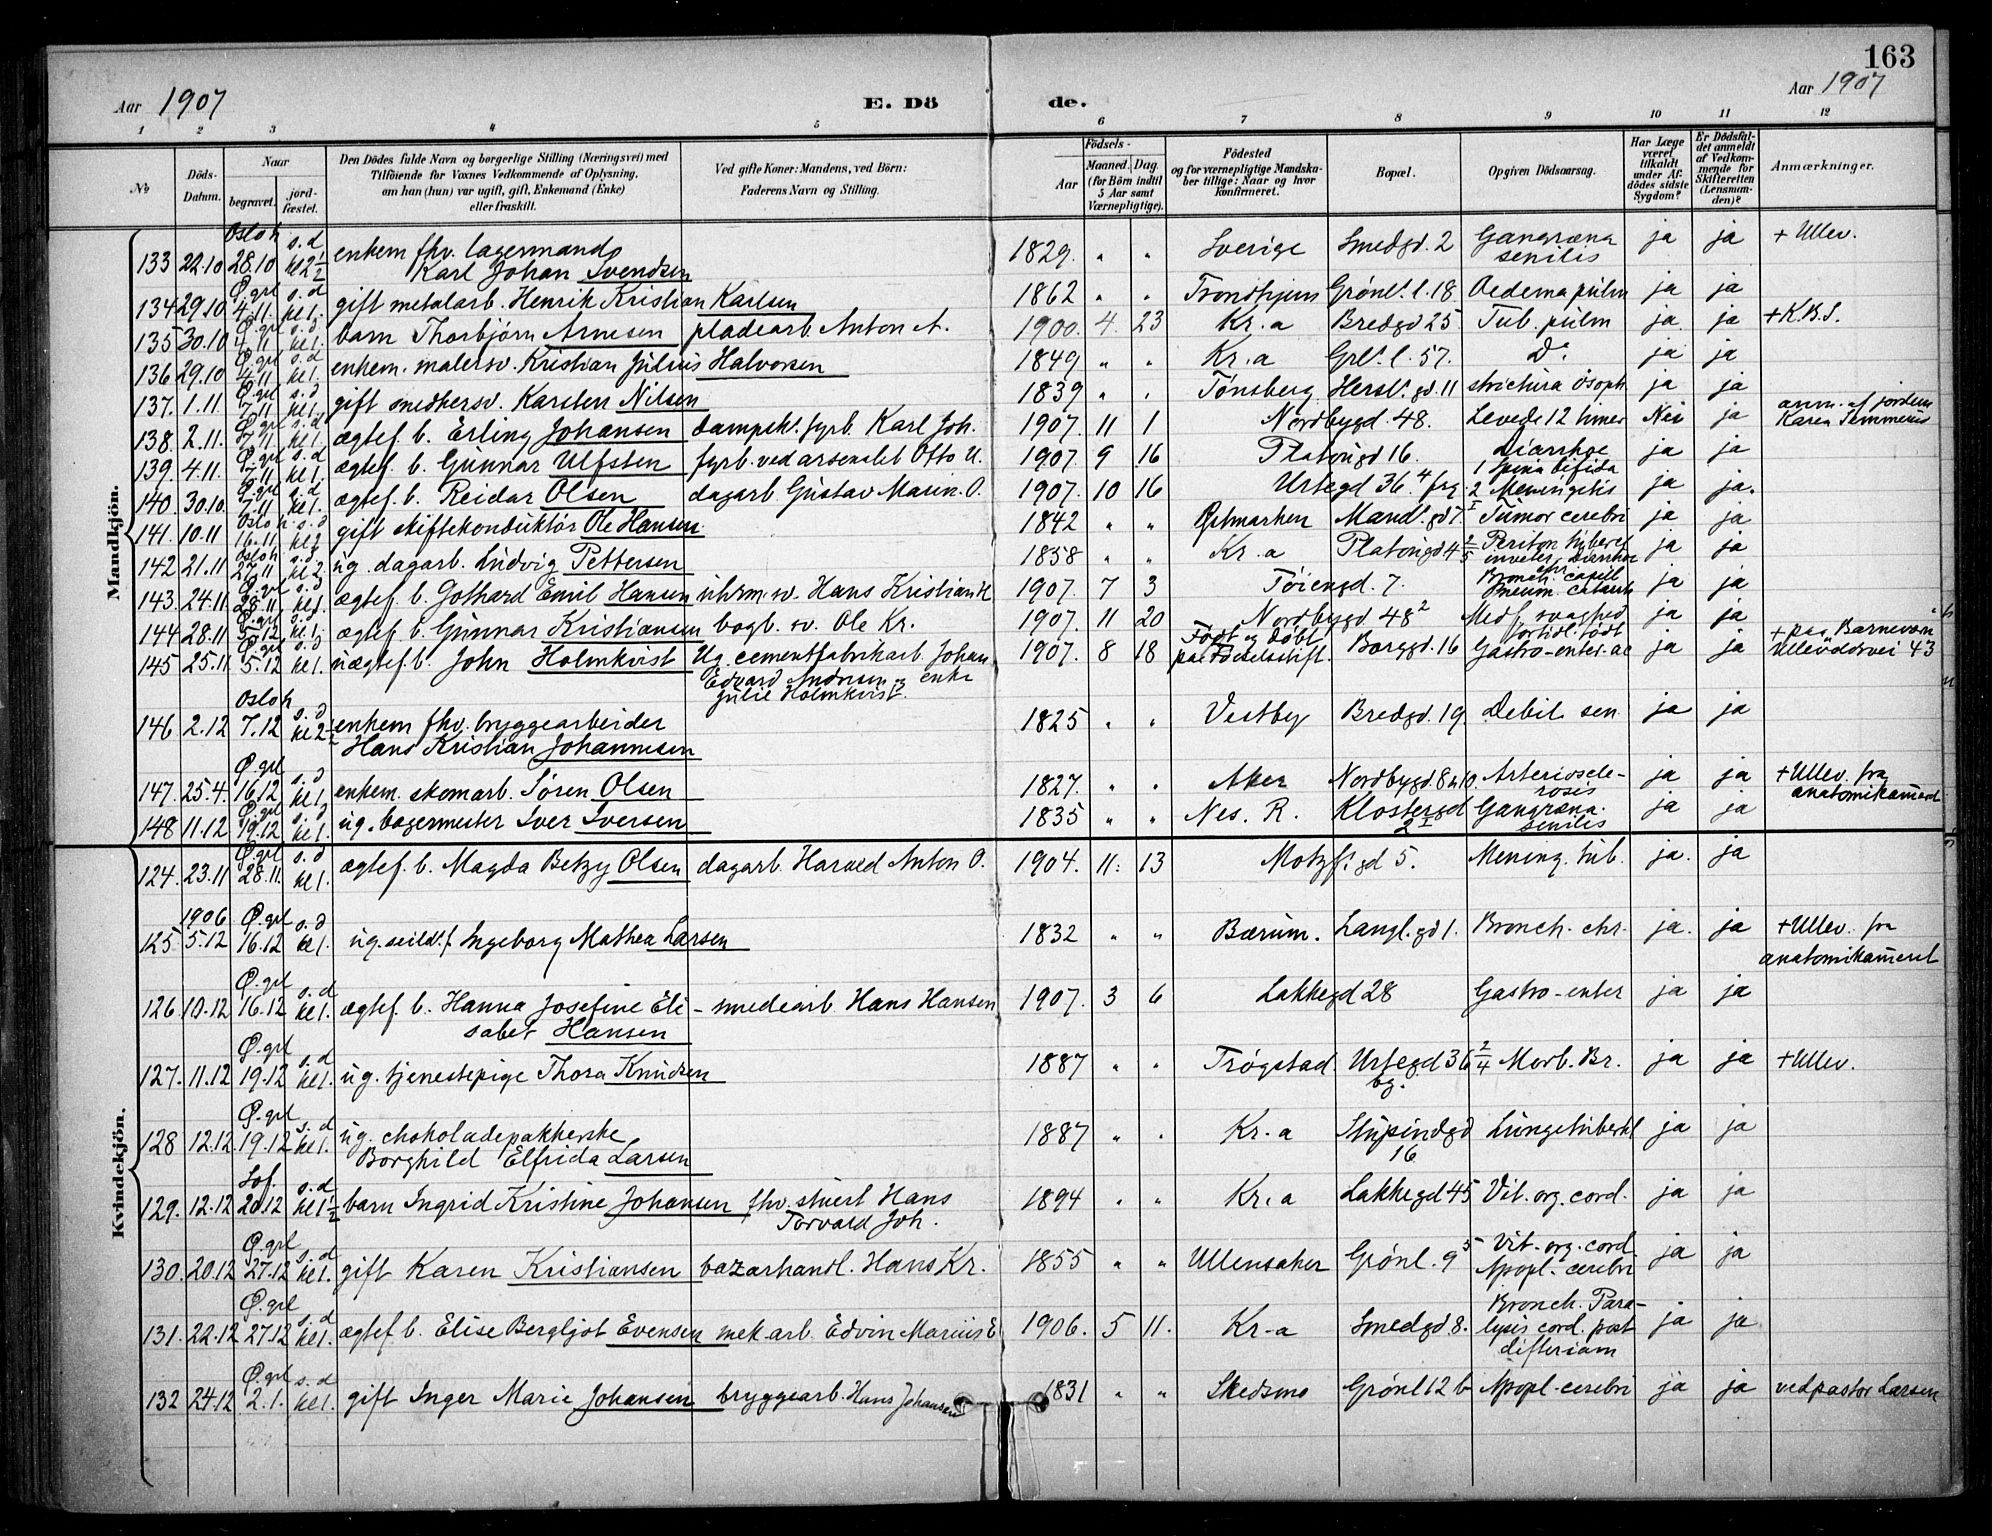 163
Aar 1907 E. Dö de. Aar 1907
1 2 3 4 5 6 7 8 9 10 11 12
No
Döds-Datum.
Naar begravet. jordfæstet.
Den Dödes fulde Navn og borgerlige Stilling (Næringsvei) med Tilföiende for Voxnes Vedkommende af Oplysning, om han (hun) var ugift, gift, Enkemand (Enke) eller fraskilt.
Ved gifte Koner: Mandens, ved Börn: Faderens Navn og Stilling.
Födsels-
Aar Maaned. Dag.
(for Børn indtil 5 Aar samt Værnepligtige).
Födested og for værnepligtige Mandskaber tillige: Naar og hvor konfirmeret.
Bopæl.
Opgiven Dödsaarsag.
Har Læge været tilkaldt under Afdödes sidste Sygdom?
Er Dödsfaldet anmeldt af Vedkommende for Skifteretten (Lensmanden)?
Anmærkninger.
Mandkjön.
133 22.10 Oslo k 28.10 s.d kl 2½ enkem fhv. lagermand Karl Johan Svendsen 1829. " " Sverige Smedgd. 2 Gangræna senilis ja ja + Ullev.
134 29.10 Ø.grl 4.11. s.d kl 1. gift metalarb. Henrik Kristian Karlsen 1862 " " Trondhjem Grönl. l. 18 Oedema pulm ja ja
135 30.10 Ø.grl 4.11 s.d. kl 1. barn Thorbjørn Arnesen pladearb Anton A. 1900. 4. 23 Kr.a Bredgd 25 Tub. pulm ja. ja + K.B.S.
136 29.10 Ø.grl 4.11 s.d kl 1. enkem. malersv. Kristian Julius Halvorsen 1849 " " Kr.a Grl. l. 57. Do ja ja
137. 1.11 Ø.grl 7.11 s.d kl 1. gift smedkersv. Karsten Nilsen 1839 " " Tönsberg Hersl. gd. 11 strictura ösoph. ja ja
138. 2.11. Ø.grl 7.11 s.d kl 1. ægtef. b. Erling Johansen dampsk. fyrb. Karl Joh. 1907. 11 1 Nordbygd. 48. Levede 12 timer Nei ja anm. af jordem Karen
139. 4.11. Ø.grl 7.11 s.d kl 1. ægtef. b. Gunnar Ulfsten fyrb. ved arsenalet Otto U. 1907. 9 16 Platougd 16. Diarrhoe ja ja
140. 30.10. Ø.grl 7.11 s.d kl 1. ægtef. b. Reidar Olsen dagarb. Gustav Maren. O. 1907. 10 16 Urtegd 36. 4 frg. 1 Spina bifida 2 Meningitis ja ja.
141. 10.11 Oslo k 16.11 s.d kl 2 gift skiftekonduktör Ole Hansen 1842 " " Østmarken Mandl. gd 7 I Tumor cerebri ja ja
142 21.11 Oslo k 27.11 s.d kl 2 ug. dagarb. Ludvig Pettersen 1858 " " Kr.a Platougd 4 2/5 Periton tubercl inveter. Diarrhoe chr. ja ja
143. 24.11 Ø.grl 28.11. s.d kl 1. ægtef. b. Gothard Emil Hansen uhrm. sv. Hans Kristian H 1907. 7 3 Töiengd. 7. Bronch. capill Pneum. catarrh ja ja
144 28.11 Ø.grl 5.12 s.d kl. 1. ægtef. b. Gunnar Kristiansen bogb. sv. Ole Kr. 1907. 11 20 Nordbygd 48 2 Medf. svaghed fortidl. født ja ja
145 25.11 Ø.grl 5.12 s.d kl 1. uægtef. b. John Holmkvist Ug. cementfabrikarb. Johan Edvard Andresen og enke Julie Holmkvist. 1907. 8 18 Födt og döbt paa Födselsstift. Borggd. 16 Gastro-enter. ac ja ja + paa Barnevan Ullevoldsvei 43
146 2.12 Oslo k 7.12 s.d kl 2½ enkem fhv. bryggearbeider Hans Kristian Johannesen 1825 " " Vestby Bredgd. 19 Debil sen ja ja
147. 25.4. Ø.grl 16.12 s.d kl 1. enkem. skomarb. Sören Olsen 1827. " " Aker Nordbygd 8 10. Arteriosclerosis ja ja + Ullev. fra anatomikamerd
148 11.12 Ø.grl 19.12 s.d kl 1. ug. bagermester Iver Iversen 1835 " " Nes. R. Klostergd 2 I Gangræna senilis ja ja
Kvindekjön.
124. 23.11 Ø.grl 28.11. s.d kl 1. ægtef. b. Magda Betzy Olsen dagarb. Harald Anton O. 1904. 11. 13 Motzf. gd 5. Mening. tub. ja. ja
125 1906 5.12 Ø.grl 16.12 s.d kl 1. ug. seild. f Ingeborg Mathea Larsen 1832 " " Bærum. Langl. gd 1. Bronch. chr. ja. ja + Ullev. fra anatomikameret
126 10.12 Ø.grl 16.12 s.d kl 1. ægtef. b. Hanna Josefine Elisabet Hansen smedearb Hans Hansen 1907. 3 6 Lakkegd 28 Gastro-enter ja ja
127. 11.12 Ø.grl 19.12 s.d kl 1. ug. tjenestepige Thora Knudsen 1887 " " Trögstad. Urtegd 36 2/4 bg. Morb. Br. ja ja + Ullev.
128 12.12 Ø.grl 19.12 s.d kl 1. ug. chokoladepakkerske Borghild Elfrida Larsen 1887 " " Kr.a Stupindgd 16 Lungetuberkl ja ja
129. 12.12 Sof. 20.12 s.d. kl 1½ barn Ingrid Kristine Johansen fhv. stuert Hans Torvard Joh. 1894 " " Kr.a Lakkegd 45 Vit. org. cord. ja ja
130. 20.12 Ø.grl 27.12 s.d kl 1. gift Karen Kristiansen bazarhandl. Hans Kr. 1855 " " Ullensaker Grönl. 9 5 Vit. org. cord Apopl. cerebri ja ja
131. 22.12 Ø.grl 27.12 s.d kl 1. ægtef b. Elise Bergljot Evensen mek.arb. Edvin Marius E 1906. 5 11. Kr-a Smedgd 8. Bronch. Paralysis cord. post difteriam ja ja
132 24.12 Ø.grl 2.1. s.d kl 1. gift Inger Marie Johansen bryggearb. Hans Johansen 1831 " " Skedsmo Grönl 12 b Apopl. cerebri ja ja ved pastor Larsen